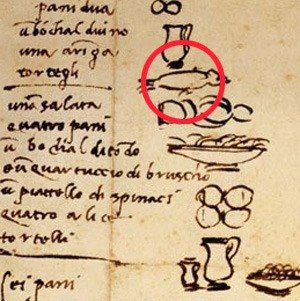 pani dua
u bochal di vino
una aringa
tortegli
una salata
quatro pani
u bochal di tōdo
e un quartuccio di bruschо
u piatello di spinaci
quatro alice
tortelli
sei pani